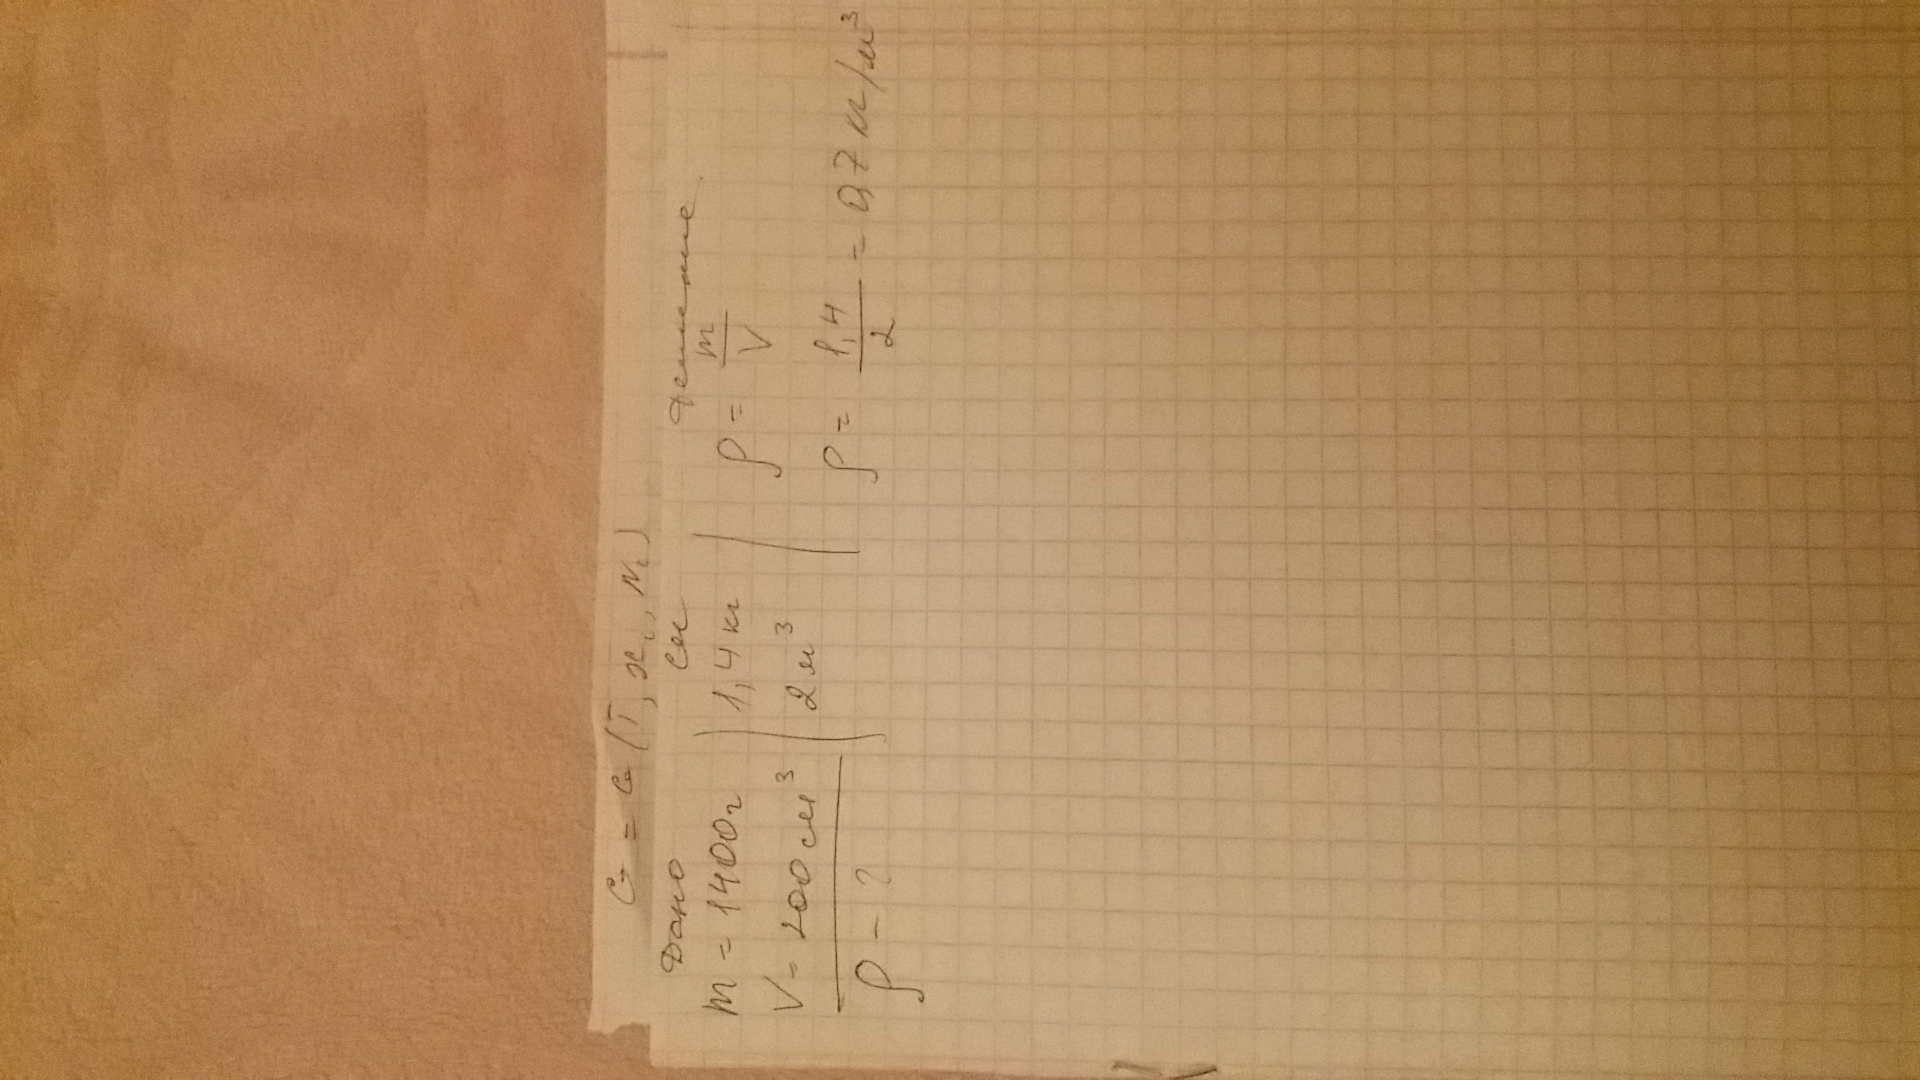 G = G (T, xᵢ, Nᵢ)
Дано
m = 1400г
V = 200 см³
ρ - ?
си
1,4 кг
2 м³
Решение
ρ = m/V
ρ = 1,4/2 = 0,7 кг/м³